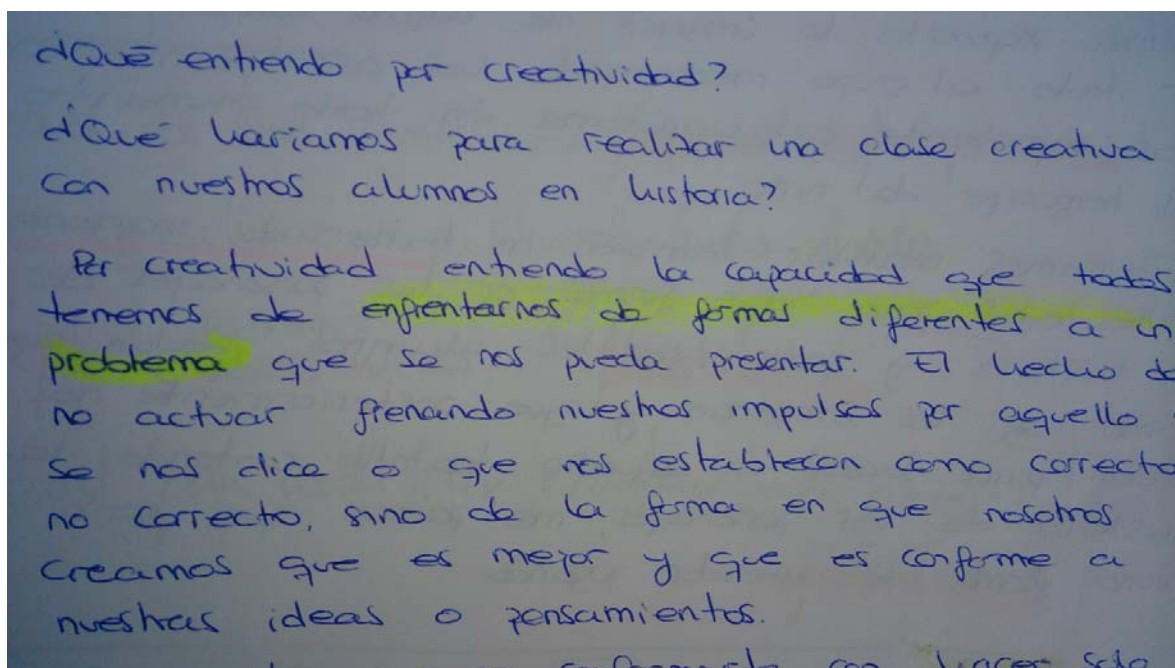 ¿Qué entiendo por creatividad?
¿Qué hariamos para realizar una clase creativa
con nuestros alumnos en historia?
Por creatividad entiendo la capacidad que todos
tenemos de enfrentarnos de formas diferentes a un
problema que se nos pueda presentar. El hecho de
no actuar frenando nuestros impulsos por aquello
se nos dice o que nos establecen como correcto
no correcto, sino de la forma en que nosotros
creamos que es mejor y que es conforme a
nuestras ideas o pensamientos.
con hacer solo